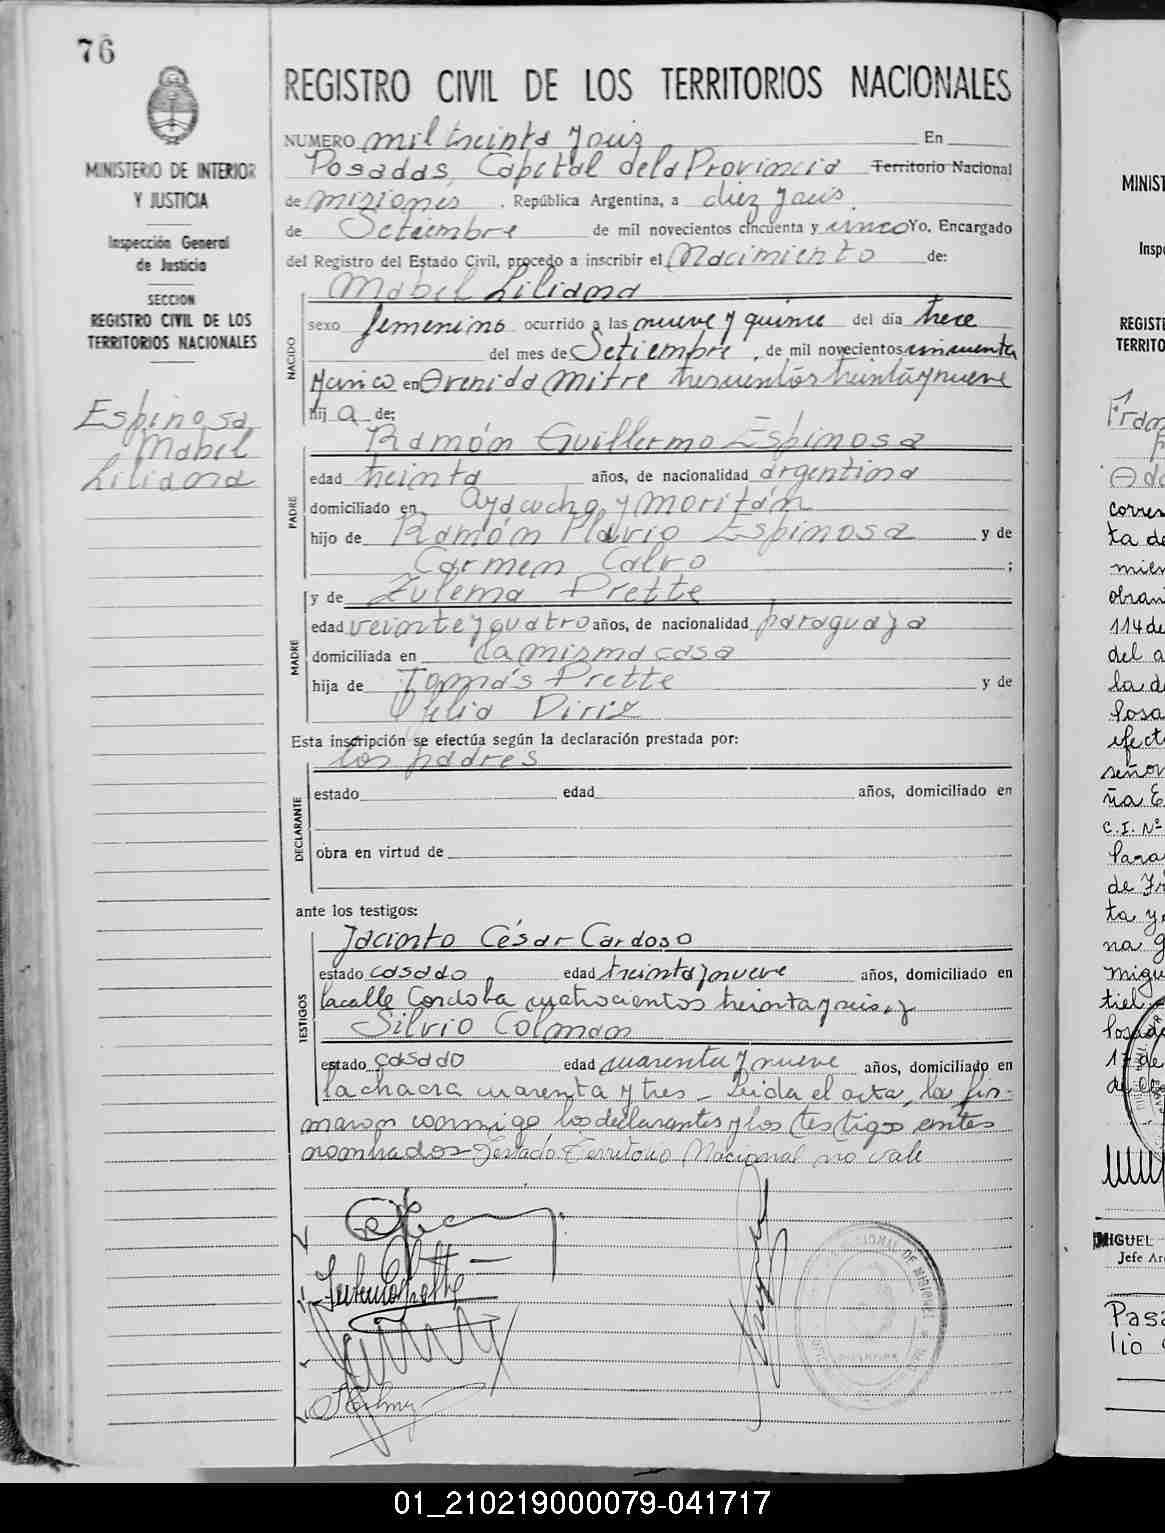 76
MINISTERIO DE INTERIOR
Y JUSTICIA
Inspección General
de Justicia
SECCION
REGISTRO CIVIL DE LOS
TERRITORIOS NACIONALES
Espinosa
Mabel
Liliana
REGISTRO CIVIL DE LOS TERRITORIOS NACIONALES
NUMERO mil treinta y seis En
Posadas, Capital de la Provincia Territorio Nacional
de misiones , República Argentina, a diez y seis
de Setiembre de mil novecientos cincuenta y cinco Yo, Encargado
del Registro del Estado Civil, procedo a inscribir el Nacimiento de:
Mabel Liliana
NACIDO
sexo femenino ocurrido a las nueve y quince del día trece
del mes de Setiembre, de mil novecientos cincuenta
y cinco en Avenida Mitre trescientos treinta y nueve
hij a de:
Ramón Guillermo Espinosa
PADRE
edad treinta años, de nacionalidad argentina
domiciliado en Ayacucho y
hijo de Ramón Flavio Espinosa y de
Carmen Calvo ;
y de Zulema Prette
MADRE
edad veinte y quatro años, de nacionalidad paraguaya
domiciliada en la misma casa
hija de Tomás Prette y de
Esta inscripción se efectúa según la declaración prestada por:
los padres
DECLARANTE
estado edad años, domiciliado en
obra en virtud de
ante los testigos:
Jacinto César Cardoso
TESTIGOS
estado casado edad treinta y nueve años, domiciliado en
la calle Cordoba cuatrocientos treinta y seis, y
Silvio Colman
estado casado edad cuarenta y nueve años, domiciliado en
la chacra cuarenta y tres - Leida el acta, la fir-
maron conmigo los declarantes y los testigos antes
nombrados - Testado Territorio Nacional no vale
MINIST
Insp
REGIST
TERRITO
corres
ta de
mien
obran
114 de
del a
la de
Posa
efect
señor
ña E
C.I. Nº
para
de Fr
ta y
na g
migu
tiel
MIGUEL
Jefe Ar
Pasa
lio
01_210219000079-041717